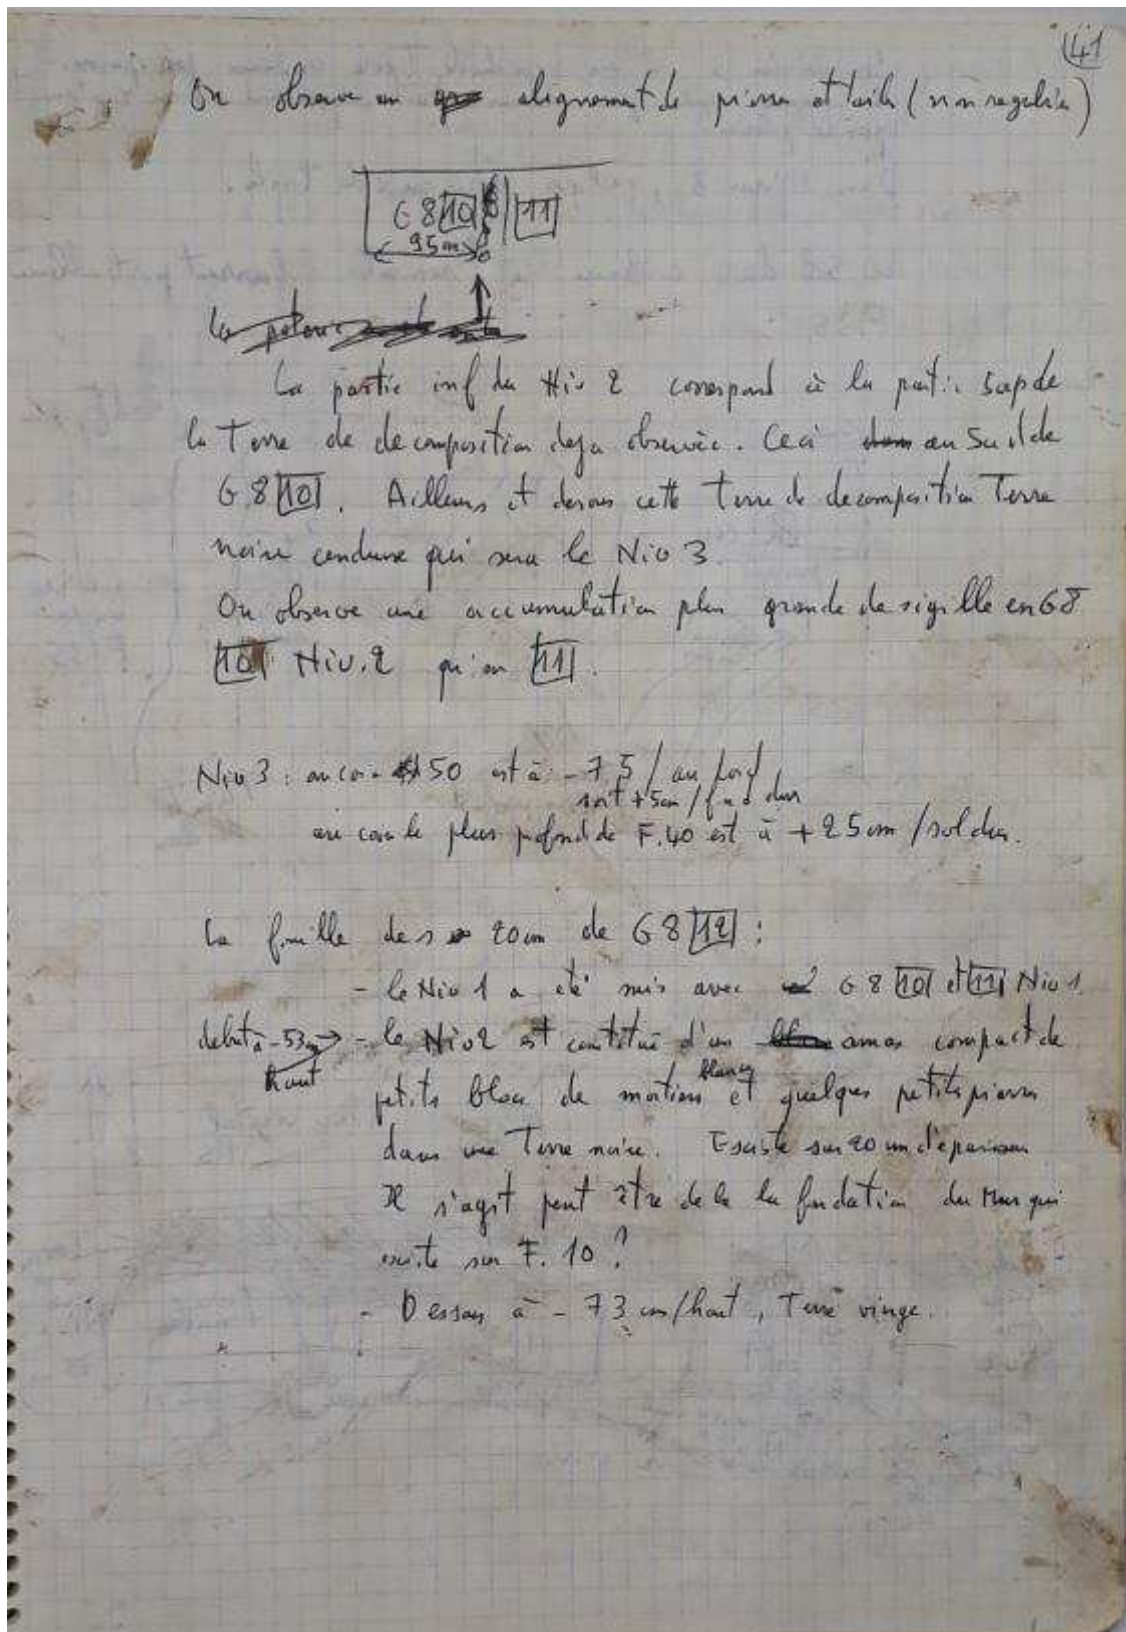 41
On observe un alignement de pierre et tuile (non regulier)
G 8 10 11
95 cm
La partie inf du Niv 2 correspond à la partie sup de
la Terre de decomposition deja observée. Ceci dans au Sud de
G 8 10. Ailleurs et dessous cette Terre de decomposition Terre
noire cendreuse qui sera le Niv 3
On observe une accumulation plus grande de sigillée en G8
10 Niv. 2 qu'en 11.
Niv 3 : 50 est à -75 / au
soit +5cm / dur
au coin le plus profond de F.40 est à +25cm / sol dur.
La fouille des 20cm de G 8 12 :
- le Niv 1 a été mis avec G 8 10 et 11 Niv 1.
debut à -53cm → - le Niv 2 est constitué d'un amas compact de
haut
blancs
petits blocs de mortiers et quelques petits pierres
dans une Terre noire. Existe sur 20 cm d'épaisseur
Il s'agit peut être de la la fondation du Mur qui
existe sur F. 10 ?
- Dessous à - 73 cm/haut, Terre vierge.